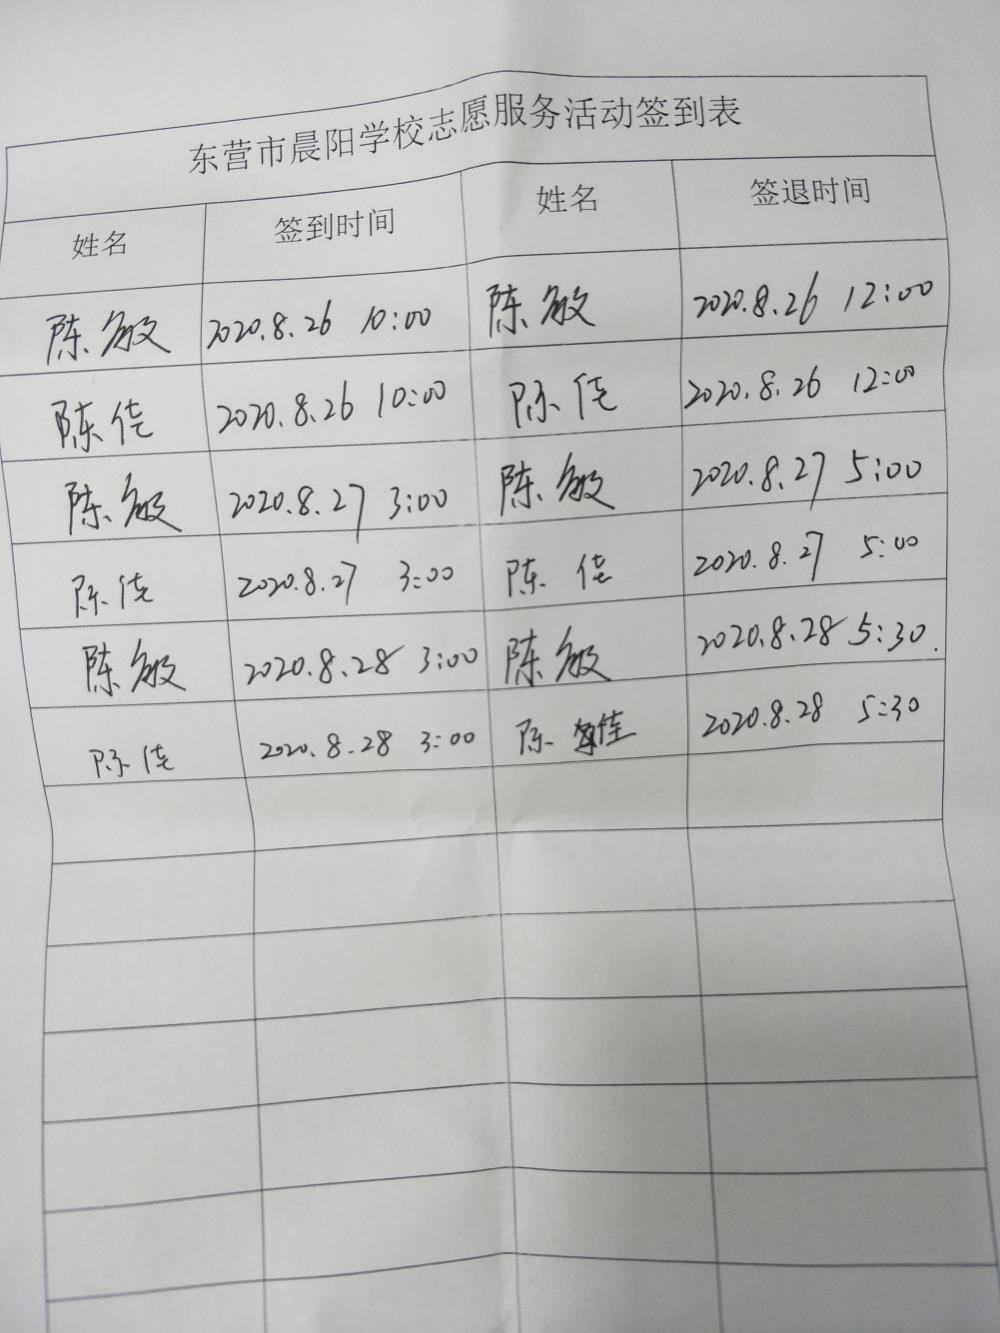 东营市晨阳学校志愿服务活动签到表
姓名 签到时间 姓名 签退时间
陈敏 2020.8.26 10:00 陈敏 2020.8.26 12:00
陈佳 2020.8.26 10:00 陈佳 2020.8.26 12:00
陈敏 2020.8.27 3:00 陈敏 2020.8.27 5:00
陈佳 2020.8.27 3:00 陈佳 2020.8.27 5:00
陈敏 2020.8.28 3:00 陈敏 2020.8.28 5:30.
陈佳 2020.8.28 3:00 陈佳 2020.8.28 5:30